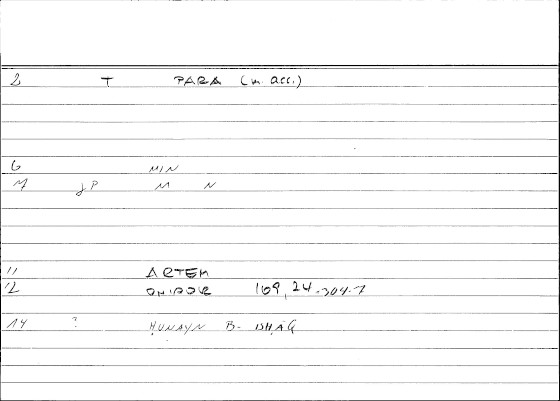 2 T PARA (w. acc.)
6 MIN
M JP M N
11 ARTEM
12 ONIROCR 169, 24-304-7
14 ? ḤUNAYN B- ISḤĀQ